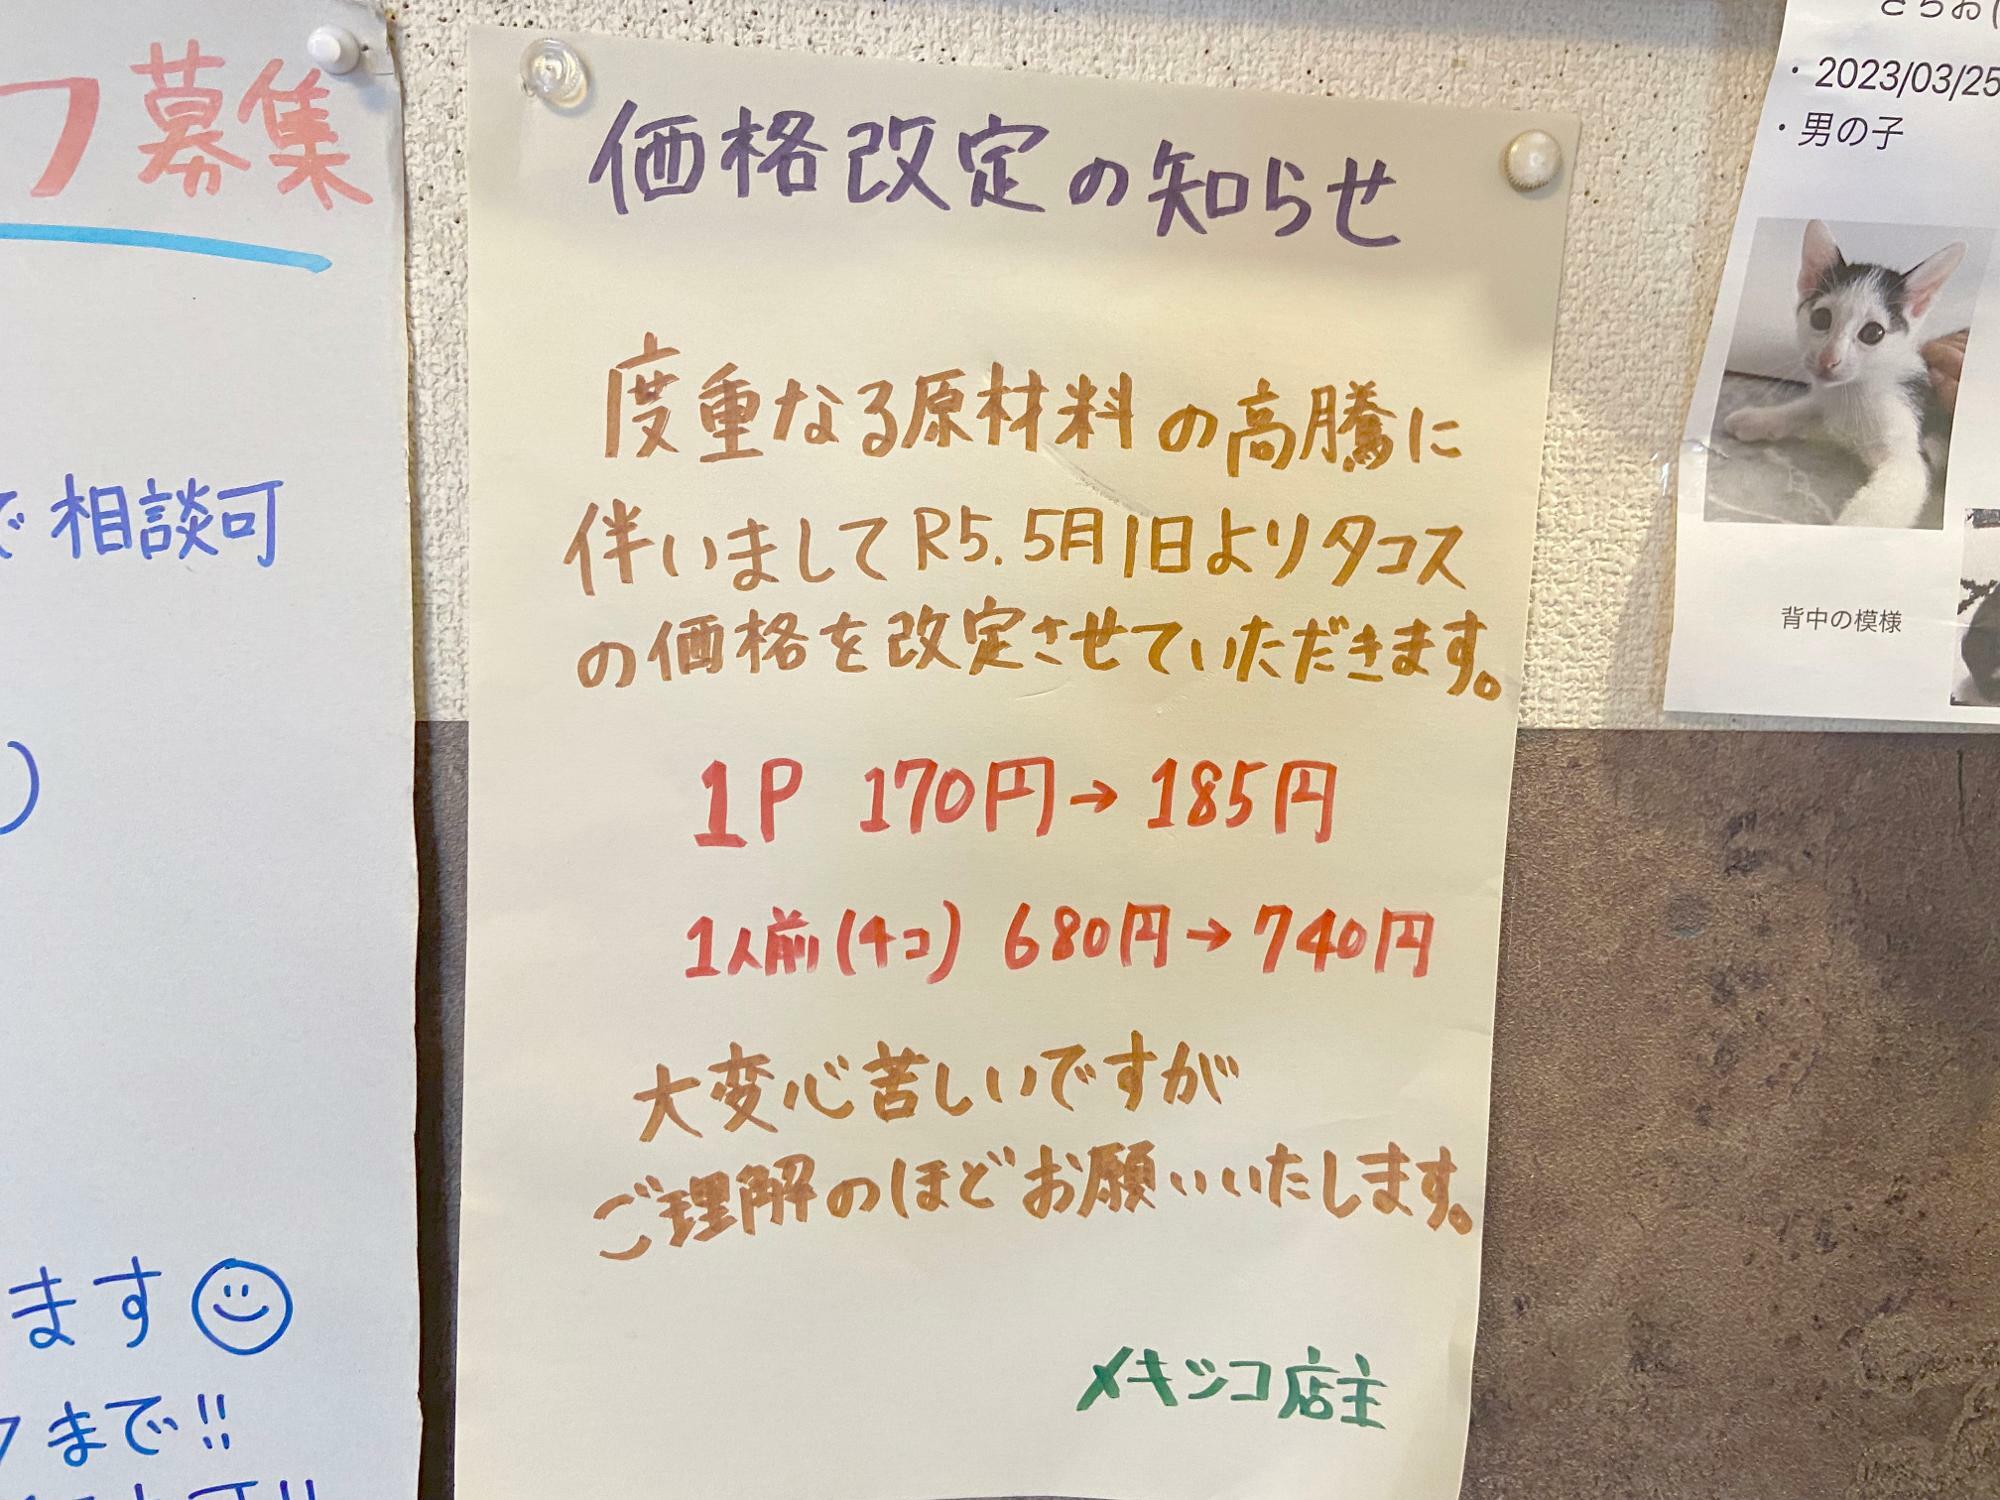 フ募集
で相談可
)
ます
まで!!
価格改定の知らせ
度重なる原材料の高騰に
伴いましてR5.5月1日よりタコス
の価格を改定させていただきます。
1P 170円→185円
1人前(4コ) 680円→740円
大変心苦しいですが
ご理解のほどお願いいたします。
メキシコ店主
・2023/03/25
・男の子
背中の模様